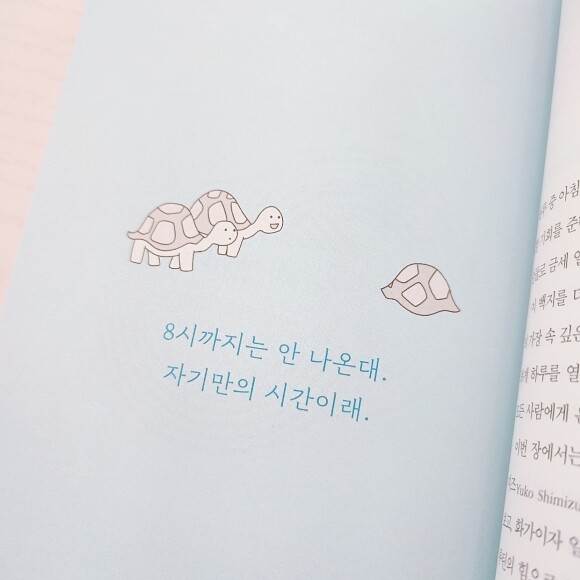 8시까지는 안 나온대.
자기만의 시간이래.
중 아침
기회를 준
금세 일
백지를 다
가장 속 깊은
하루를 열
사람에게 운
이번 장에서는
Yuko Shimizu
화가이자 일
힘으로